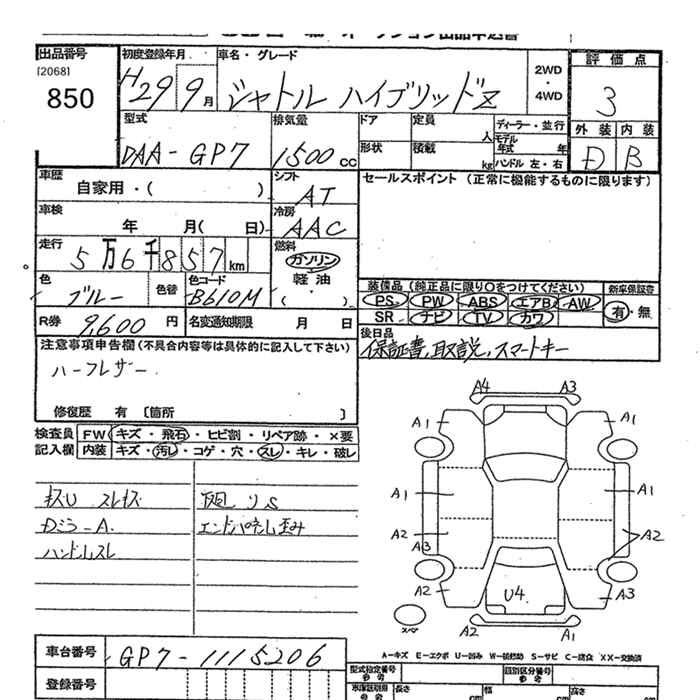 出品番号
[2068]
850
初度登録年月
H29 9月
車名・グレード
シャトル ハイブリッドZ
2WD
・4WD
評価点
3
外装 内装
D B
型式
DAA-GP7
排気量
1500cc
ドア
定員
人
形状
積載
kg
ディーラー・並行
モデル年式 年
ハンドル 左・右
車歴
自家用・( )
シフト
AT
セールスポイント (正常に機能するものに限ります)
車検
年 月( 日)
冷房
AAC
走行
5万6千857km
燃料
ガソリン
軽油
( )
色
ブルー
色替
色コード
B610M
装備品 (純正品に限り○をつけてください)
PS PW ABS エアB AW
SR ナビ TV カワ
新車保証書
有・無
R券
9,600円
名変通知期限
月 日
後日品
保証書,取説,スマートキー
注意事項申告欄(不具合内容等は具体的に記入して下さい)
ハーフレザー
修復歴 有 [箇所 ]
検査員記入欄
FW キズ・飛石・ヒビ割・リペア跡・×要
内装 キズ・汚レ・コゲ・穴・スレ・キレ・破レ
エンドパネル歪み
ハンドルスレ
A4 A3
A1 A1
A1 A1
A2 A2
A3
A2 U4 A3
A2 A1
A-キズ E-エクボ U-凹み W-板修跡 S-サビ C-腐食 XX-交換済
車台番号
GP7-1115206
登録番号
型式指定番号
類別区分番号
長さ
cm
幅
cm
高さ